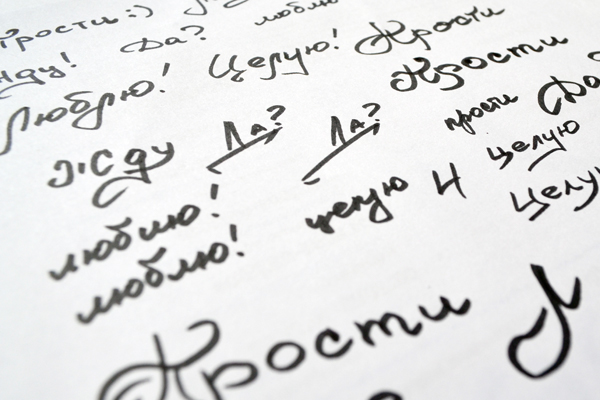 Прости :)
люблю
Жду! Да? Целую! Прости
Люблю! Прости
Жду Да? Да? прости Да?
люблю! целую Ц целую
люблю! Целую
Прости Л